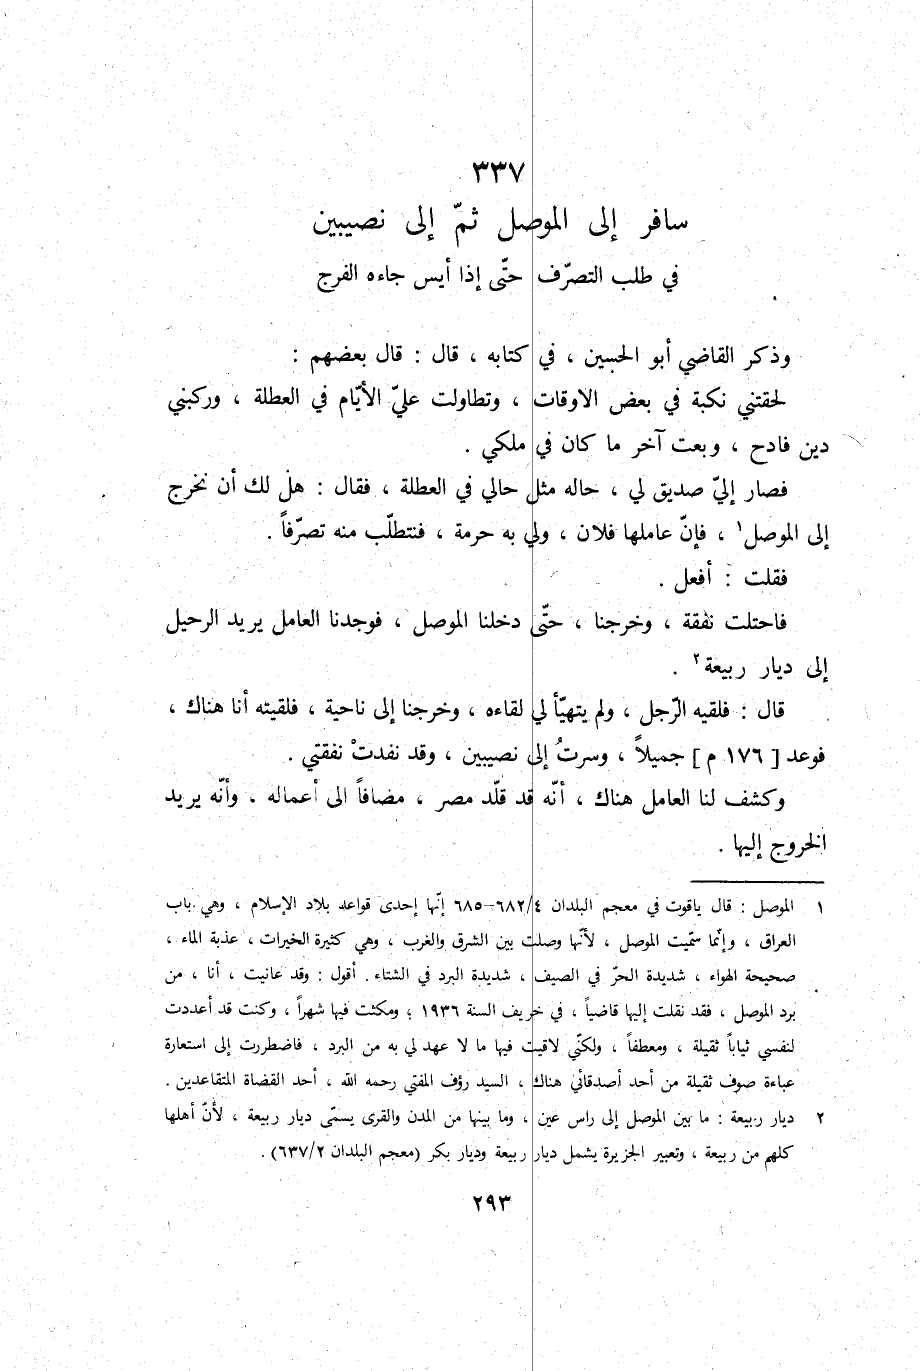 ٣٣٧
سافر إلى الموصل ثمّ إلى نصيبين
في طلب التصرّف حتّى إذا أيس جاءه الفرج
وذكر القاضي أبو الحسين ، في كتابه ، قال : قال بعضهم :
لحقتني نكبة في بعض الاوقات ، وتطاولت عليّ الأيّام في العطلة ، وركبني
دين فادح ، وبعت آخر ما كان في ملكي .
فصار إليّ صديق لي ، حاله مثل حالي في العطلة ، فقال : هل لك أن نخرج
إلى الموصل١ ، فإنّ عاملها فلان ، ولي به حرمة ، فنتطلّب منه تصرّفاً .
فقلت : أفعل .
فاحتلت نفقة ، وخرجنا ، حتّى دخلنا الموصل ، فوجدنا العامل يريد الرحيل
إلى ديار ربيعة٢ .
قال : فلقيه الرّجل ، ولم يتهيّأ لي لقاءه ، وخرجنا إلى ناحية ، فلقيته أنا هناك ،
فوعد [ ١٧٦ م ] جميلاً ، وسرتُ إلى نصيبين ، وقد نفدتْ نفقتي .
وكشف لنا العامل هناك ، أنّه قد قلّد مصر ، مضافاً الى أعماله ، وأنّه يريد
الخروج إليها .
١ الموصل : قال ياقوت في معجم البلدان ٦٨٢/٤–٦٨٥ إنّها إحدى قواعد بلاد الإسلام ، وهي باب
العراق ، وإنّما سمّيت الموصل ، لأنّها وصلت بين الشرق والغرب ، وهي كثيرة الخيرات ، عذبة الماء ،
صحيحة الهواء ، شديدة الحرّ في الصيف ، شديدة البرد في الشتاء . أقول : وقد عانيت ، أنا ، من
برد الموصل ، فقد نقلت إليها قاضياً ، في خريف السنة ١٩٣٦ ؛ ومكثت فيها شهراً ، وكنت قد أعددت
لنفسي ثياباً ثقيلة ، ومعطفاً ، ولكنّي لاقيت فيها ما لا عهد لي به من البرد ، فاضطررت إلى استعارة
عباءة صوف ثقيلة من أحد أصدقائي هناك ، السيد رؤف المفتي رحمه الله ، أحد القضاة المتقاعدين .
٢ ديار ربيعة : ما بين الموصل إلى راس عين ، وما بينها من المدن والقرى يسمّى ديار ربيعة ، لأنّ أهلها
كلهم من ربيعة ، وتعبير الجزيرة يشمل ديار ربيعة وديار بكر (معجم البلدان ٦٣٧/٢) .
٢٩٣